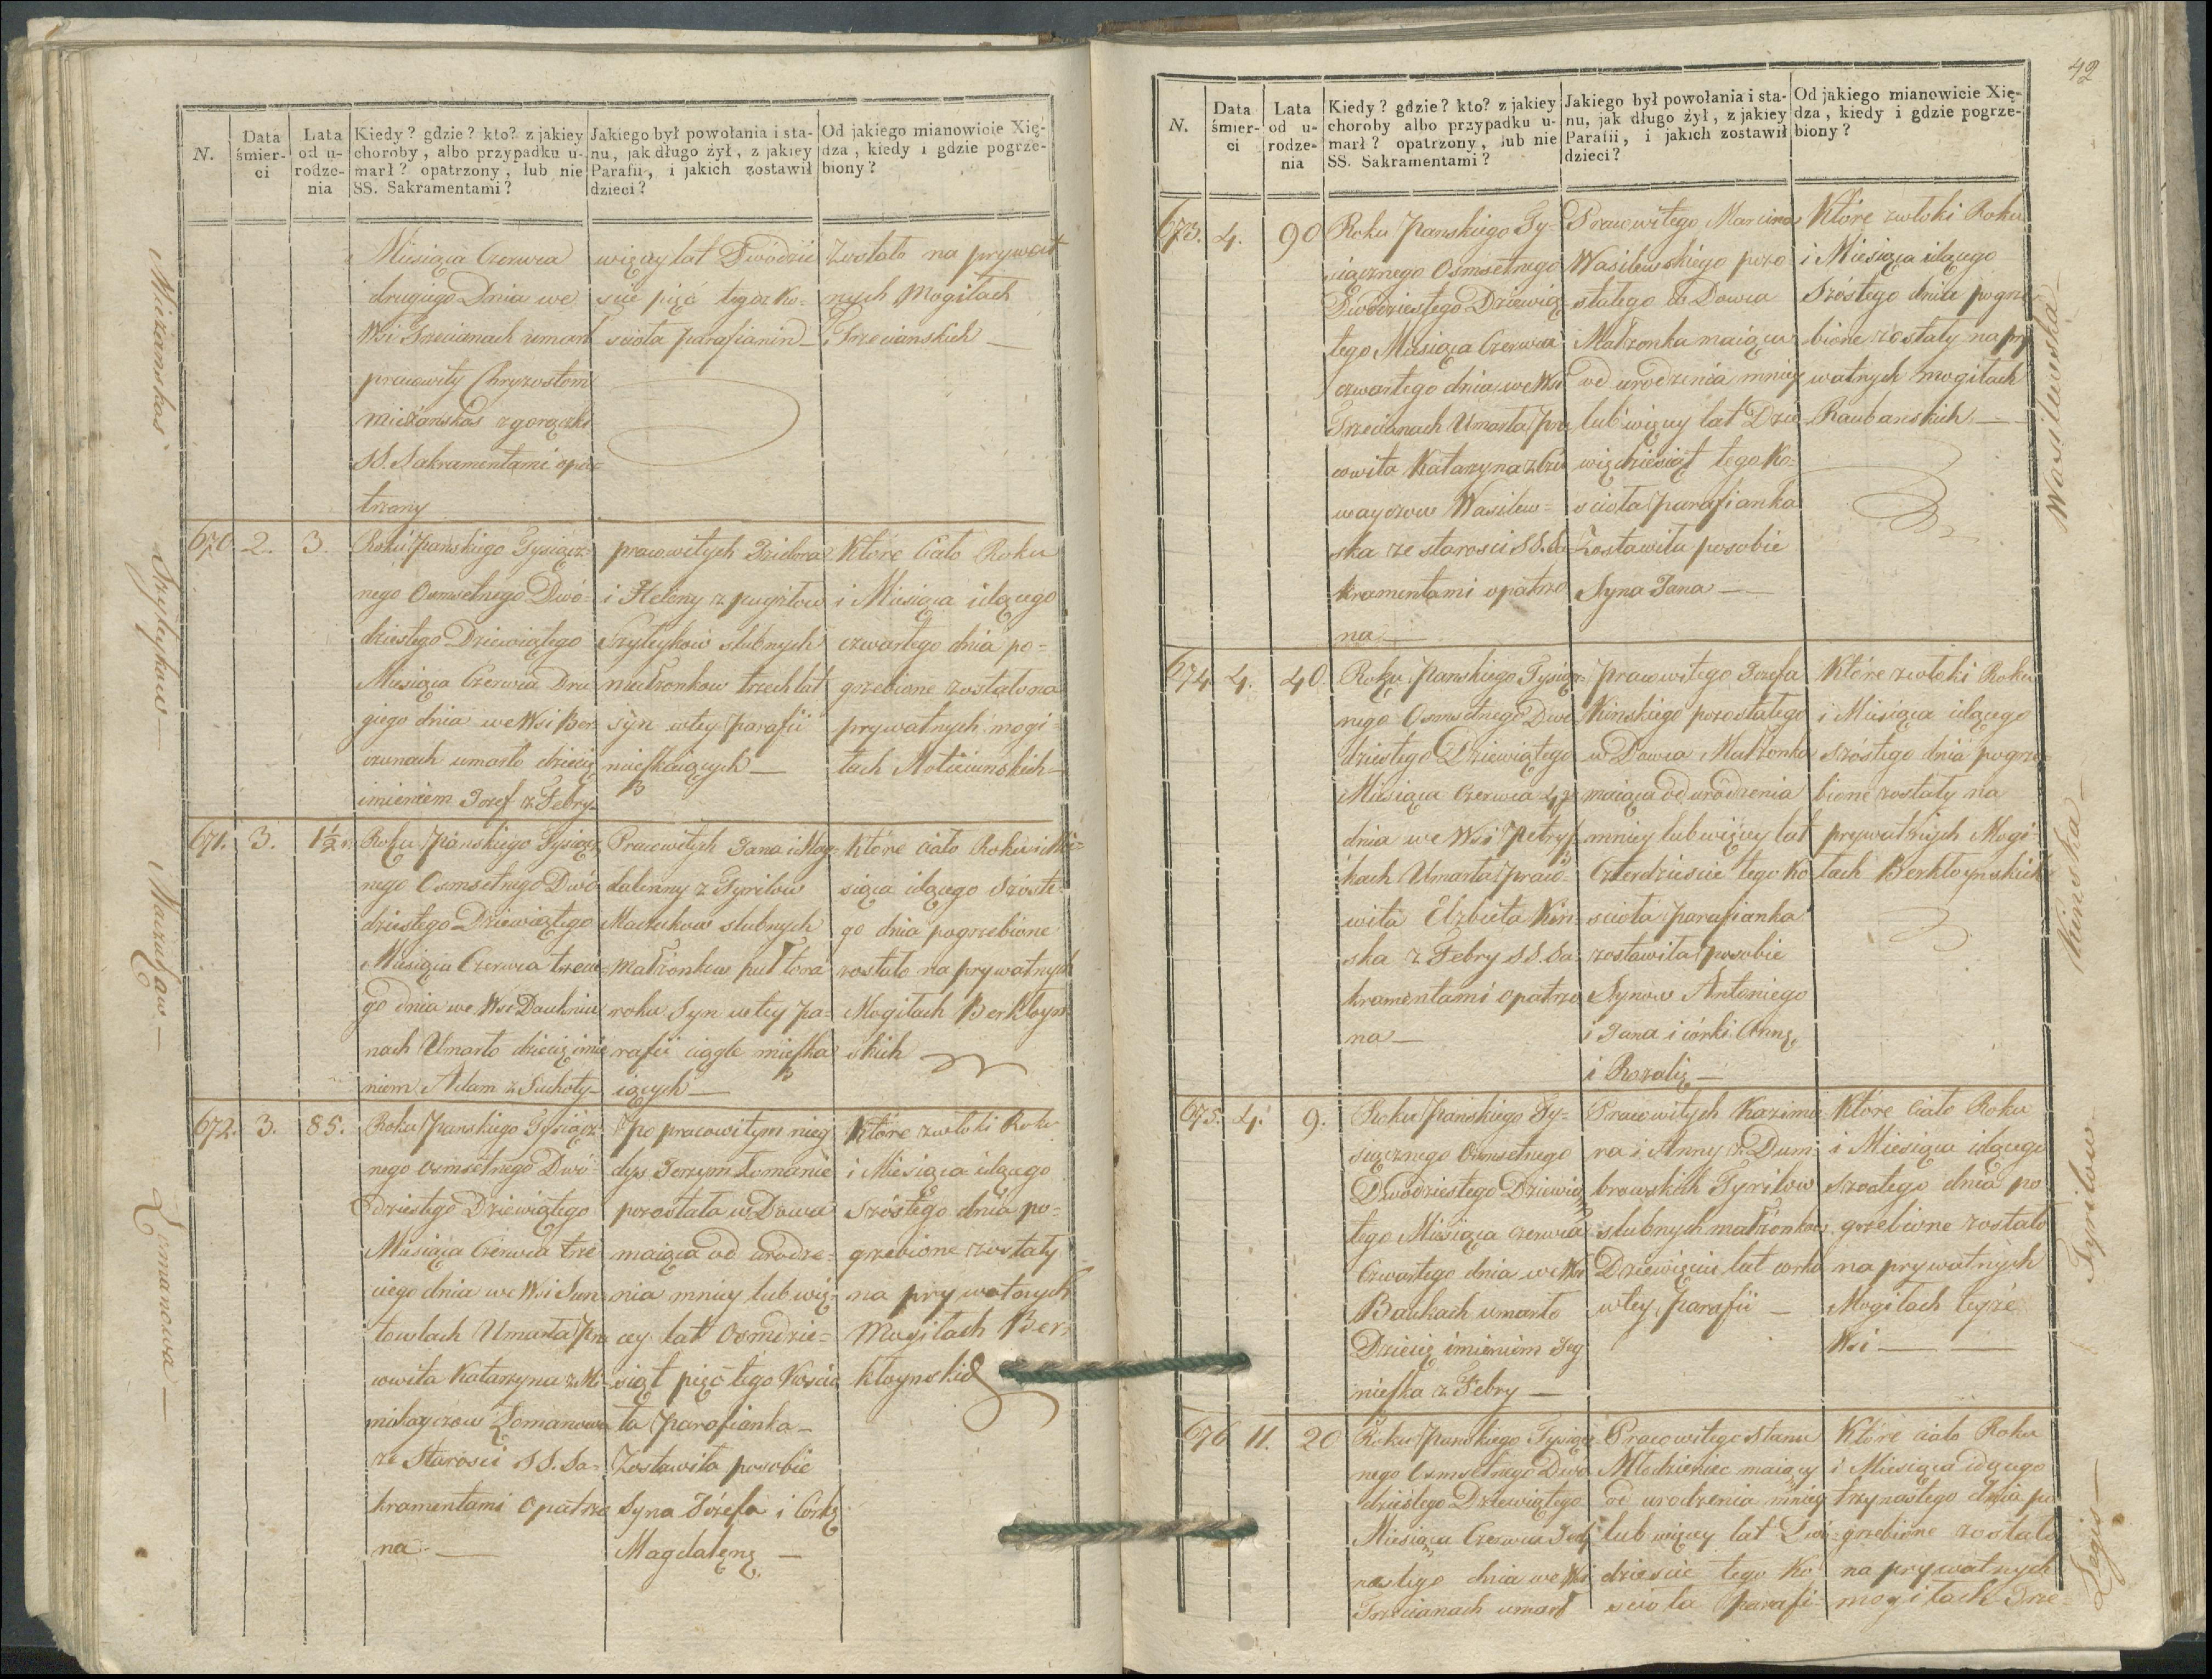 N.
Data
śmier-
ci
Lata
od u-
rodze-
nia
Kiedy? gdzie? kto? z jakiey
choroby, albo przypadku u-
marł? opatrzony, lub nie
SS. Sakramentami?
Jakiego był powołania i sta-
nu, jak długo żył, z jakiey
Parafii, i jakich zostawił
dzieci?
Od jakiego mianowicie Xię-
dza, kiedy i gdzie pogrze-
biony?
Miesiąca Czerwca
drugiego Dnia we
Wsi Trzecianach umarł
pracowity Chryzostom
Mieżanskas z gorączki
SS. Sakramentami opa-
trzony
więcey lat Dwódzie
scie pięć tegoż Ko-
scioła parafianin —
zwołało na prywat
nych Mogiłach
Trzecianskich —
Mieżanskas
670.
2.
3.
Roku Panskiego Tysiącz-
nego Osmsetnego Dwó-
dziestego Dziewiątego
Miesiąca Czerwca Dru
giego dnia we Wsi Ber
czunach umarło dziecię
imieniem Jozef z Febry
pracowitych Izidora
i Heleny z pugztow
Szyleykow slubnych
małżonkow trzech lat
syn wtey parafii
mieszkaiących —
Które Ciało Roku
i Miesiąca idącego
czwartego dnia po=
grzebione zostało na
prywatnych mogi
łach Moticiunskich —
Szyleykow —
671.
3.
1½ r.
Roku Panskiego Tysiącz
nego Osmsetnego Dwó
dziestego Dziewiątego
Miesiąca Czerwca trzecie-
go dnia we Wsi Daukniu
nach Umarło dziecię imie
niem Adam z Suchoty —
Pracowitych Jana i Mag-
daleny z Tyrilow
Maczukow slubnych
Małżonkow puł tora
roku Syn wtey Pa-
rafii ciągle mieszka
iących —
które ciało Roku i Mie-
siąca idącego szóste-
go dnia pogrzebione
zostało na prywatnych
Mogiłach Berkłoyn
skich
Maczukaw —
672.
3.
85.
Roku Panskiego Tysiącz
nego osmsetnego Dwó-
dziestego Dziewiątego
Miesiąca Czerwca trze
ciego dnia we Wsi Sun
towtach Umarła Pra
cowita Katarzyna z Mi-
miłayczow Łomanowa
ze Starosci SS. Sa-
kramentami Opatrzo
na —
Po pracowitym nieg
dys Jerzym Łomanie
pozostała w Dowa
maiąca od urodze-
nia mniey lub wię-
cey lat Osmdzie=
siąt pięć tego Koscio
ła Parafianka —
Zostawiła po sobie
Syna Józefa i Corkę
Magdalenę —
Które zwłoki Roku
i Miesiąca idącego
szóstego dnia po=
grzebione zostały
na prywatnych
Mogiłach Ber-
kłoynskich
Łomanowa —
42
N.
Data
śmier-
ci
Lata
od u-
rodze-
nia
Kiedy? gdzie? kto? z jakiey
choroby albo przypadku u-
marł? opatrzony, lub nie
SS. Sakramentami?
Jakiego był powołania i sta-
nu, jak długo żył, z jakiey
Parafii, i jakich zostawił
dzieci?
Od jakiego mianowicie Xię-
dza, kiedy i gdzie pogrze-
biony?
673.
4.
90
Roku Panskiego Ty-
siącznego Osmsetnego
Dwódziestego Dziewią
tego Miesiąca Czerwca
czwartego dnia we Wsi
Trzecianach Umarła Pra
cowita Katarzyna z
wayczow Wasilew=
ska ze starosci SS. Sa-
kramentami opatrzo
na —
Pracowitego Marcina
Wasilewskiego pozo
stałego w Dowca
Małżonka maiąca
od urodzenia mniey
lub więcey lat Dzie
więdziesiąt tego Ko-
scioła Parafianka
Zostawiła po sobie
Syna Jana —
Które zwłoki Roku
i Miesiąca idącego
Szóstego dnia pogrze
bione zostały na pry
watnych mogiłach
Raubanskich —
Wasilewska —
674
4.
40
Roku Panskiego Tysiącz-
nego Osmsetnego Dwó
dziestego Dziewiątego
Miesiąca Czerwca 4go
dnia we Wsi Petrysz-
kach Umarła Praco-
wita Elzbieta Kin-
ska z Febry SS. Sa-
kramentami opatrzo
na —
Pracowitego Jozefa
Kinskiego pozostałego
w Dowca Małżonka
maiąca od urodzenia
mniey lub więcey lat
Czterdziescie tego Ko
scioła Parafianka
zostawiła po sobie
Synow Antoniego
i Jana i córki Annę
i Rozalię —
Które zwłoki Roku
i Miesiąca idącego
szóstego dnia pogrze-
bione zostały na
prywatnych Mogi-
łach Berkłoynskich
Kinska —
675.
4.
9.
Roku Panskiego Ty-
siącznego Osmsetnego
Dwodziestego Dziewią
tego Miesiąca czerwca
Czwartego dnia we Wsi
Baukach umarło
Dziecię imieniem Jag
nieszka z Febry —
Pracowitych Kazimie
ra i Anny z Dum-
browskich Tyrilow
slubnych małżonkow
Dziewięciu lat corka
wtey parafii —
Które ciało Roku
i Miesiąca idącego
szóstego dnia po
grzebione zostało
na prywatnych
Mogiłach teyże
Wsi —
Tyrilow
676
11.
20
Roku Panskiego Tysiącz
nego Osmsetnego Dwó
dziestego Dziewiątego
Miesiąca Czerwca Jede
nastego dnia we Wsi
Trzecianach umarł
Pracowitego Stanu
Młodzieniec maiący
od urodzenia mniey
lub więcey lat Dwó-
dziescie tego Ko-
scioła Parafi-
Które ciało Roku
i Miesiąca idącego
trzynastego dnia po
grzebione zostało
na prywatnych
mogiłach Trze-
Legis —